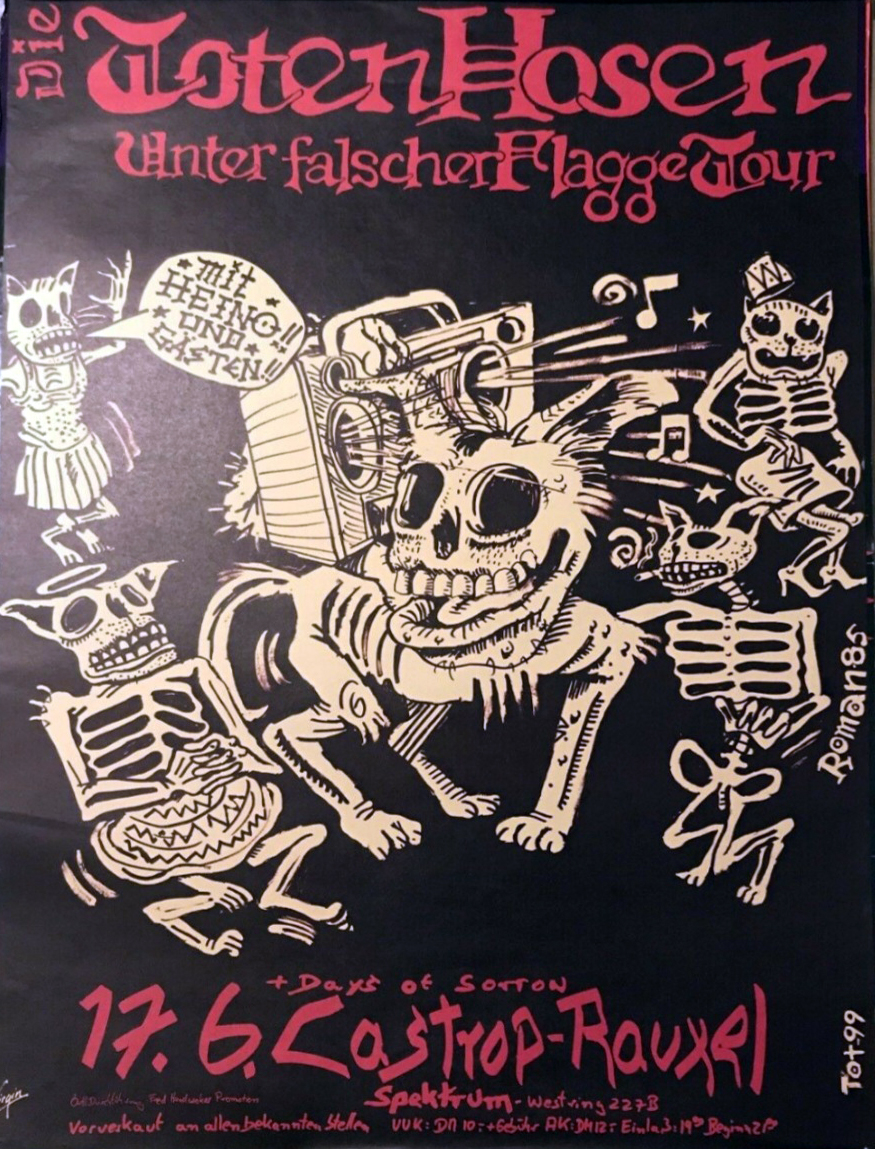 Die
Toten Hosen
Unter falscher Flagge Tour
mit
HEINO!!
UND
GÄSTEN!!
W
Roman85
Tot-99
+ Days of Sorrow
17. 6. Castrop-Rauxel
Spektrum - Westring 227B
Vorverkauf an allen bekannten Stellen VVK: DM 10:- + Gebühr AK: DM 12:- Einlaß: 19⁰⁰ Beginn